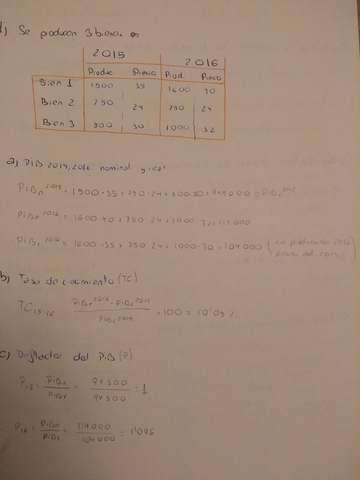 1) Se producen 3 bienes en
2015 2016
Produc Precio Prod Precio
Bien 1 1500 35 1600 40
Bien 2 750 24 750 24
Bien 3 800 30 1000 32
a) PIB 2015, 2016 nominal y real
PIBn 2015 = 1500·35 + 750·24 + 800·30 = 94500 = PIBr 2015
PIBn 2016 = 1600·40 + 750·24 + 1000·32 = 114000
PIBr 2016 = 1600·35 + 750·24 + 1000·30 = 104000 ( producción 2016
precio del 2015 )
b) Tasa de crecimiento (TC)
TC 15-16 = PIBr 2016 - PIBr 2015 / PIBr 2015 ·100 = 10'05 %
c) Deflactor del PIB (P)
P15 = PIBn / PIBr = 94500 / 94500 = 1
P16 = PIBn / PIBr = 114000 / 104000 = 1'096